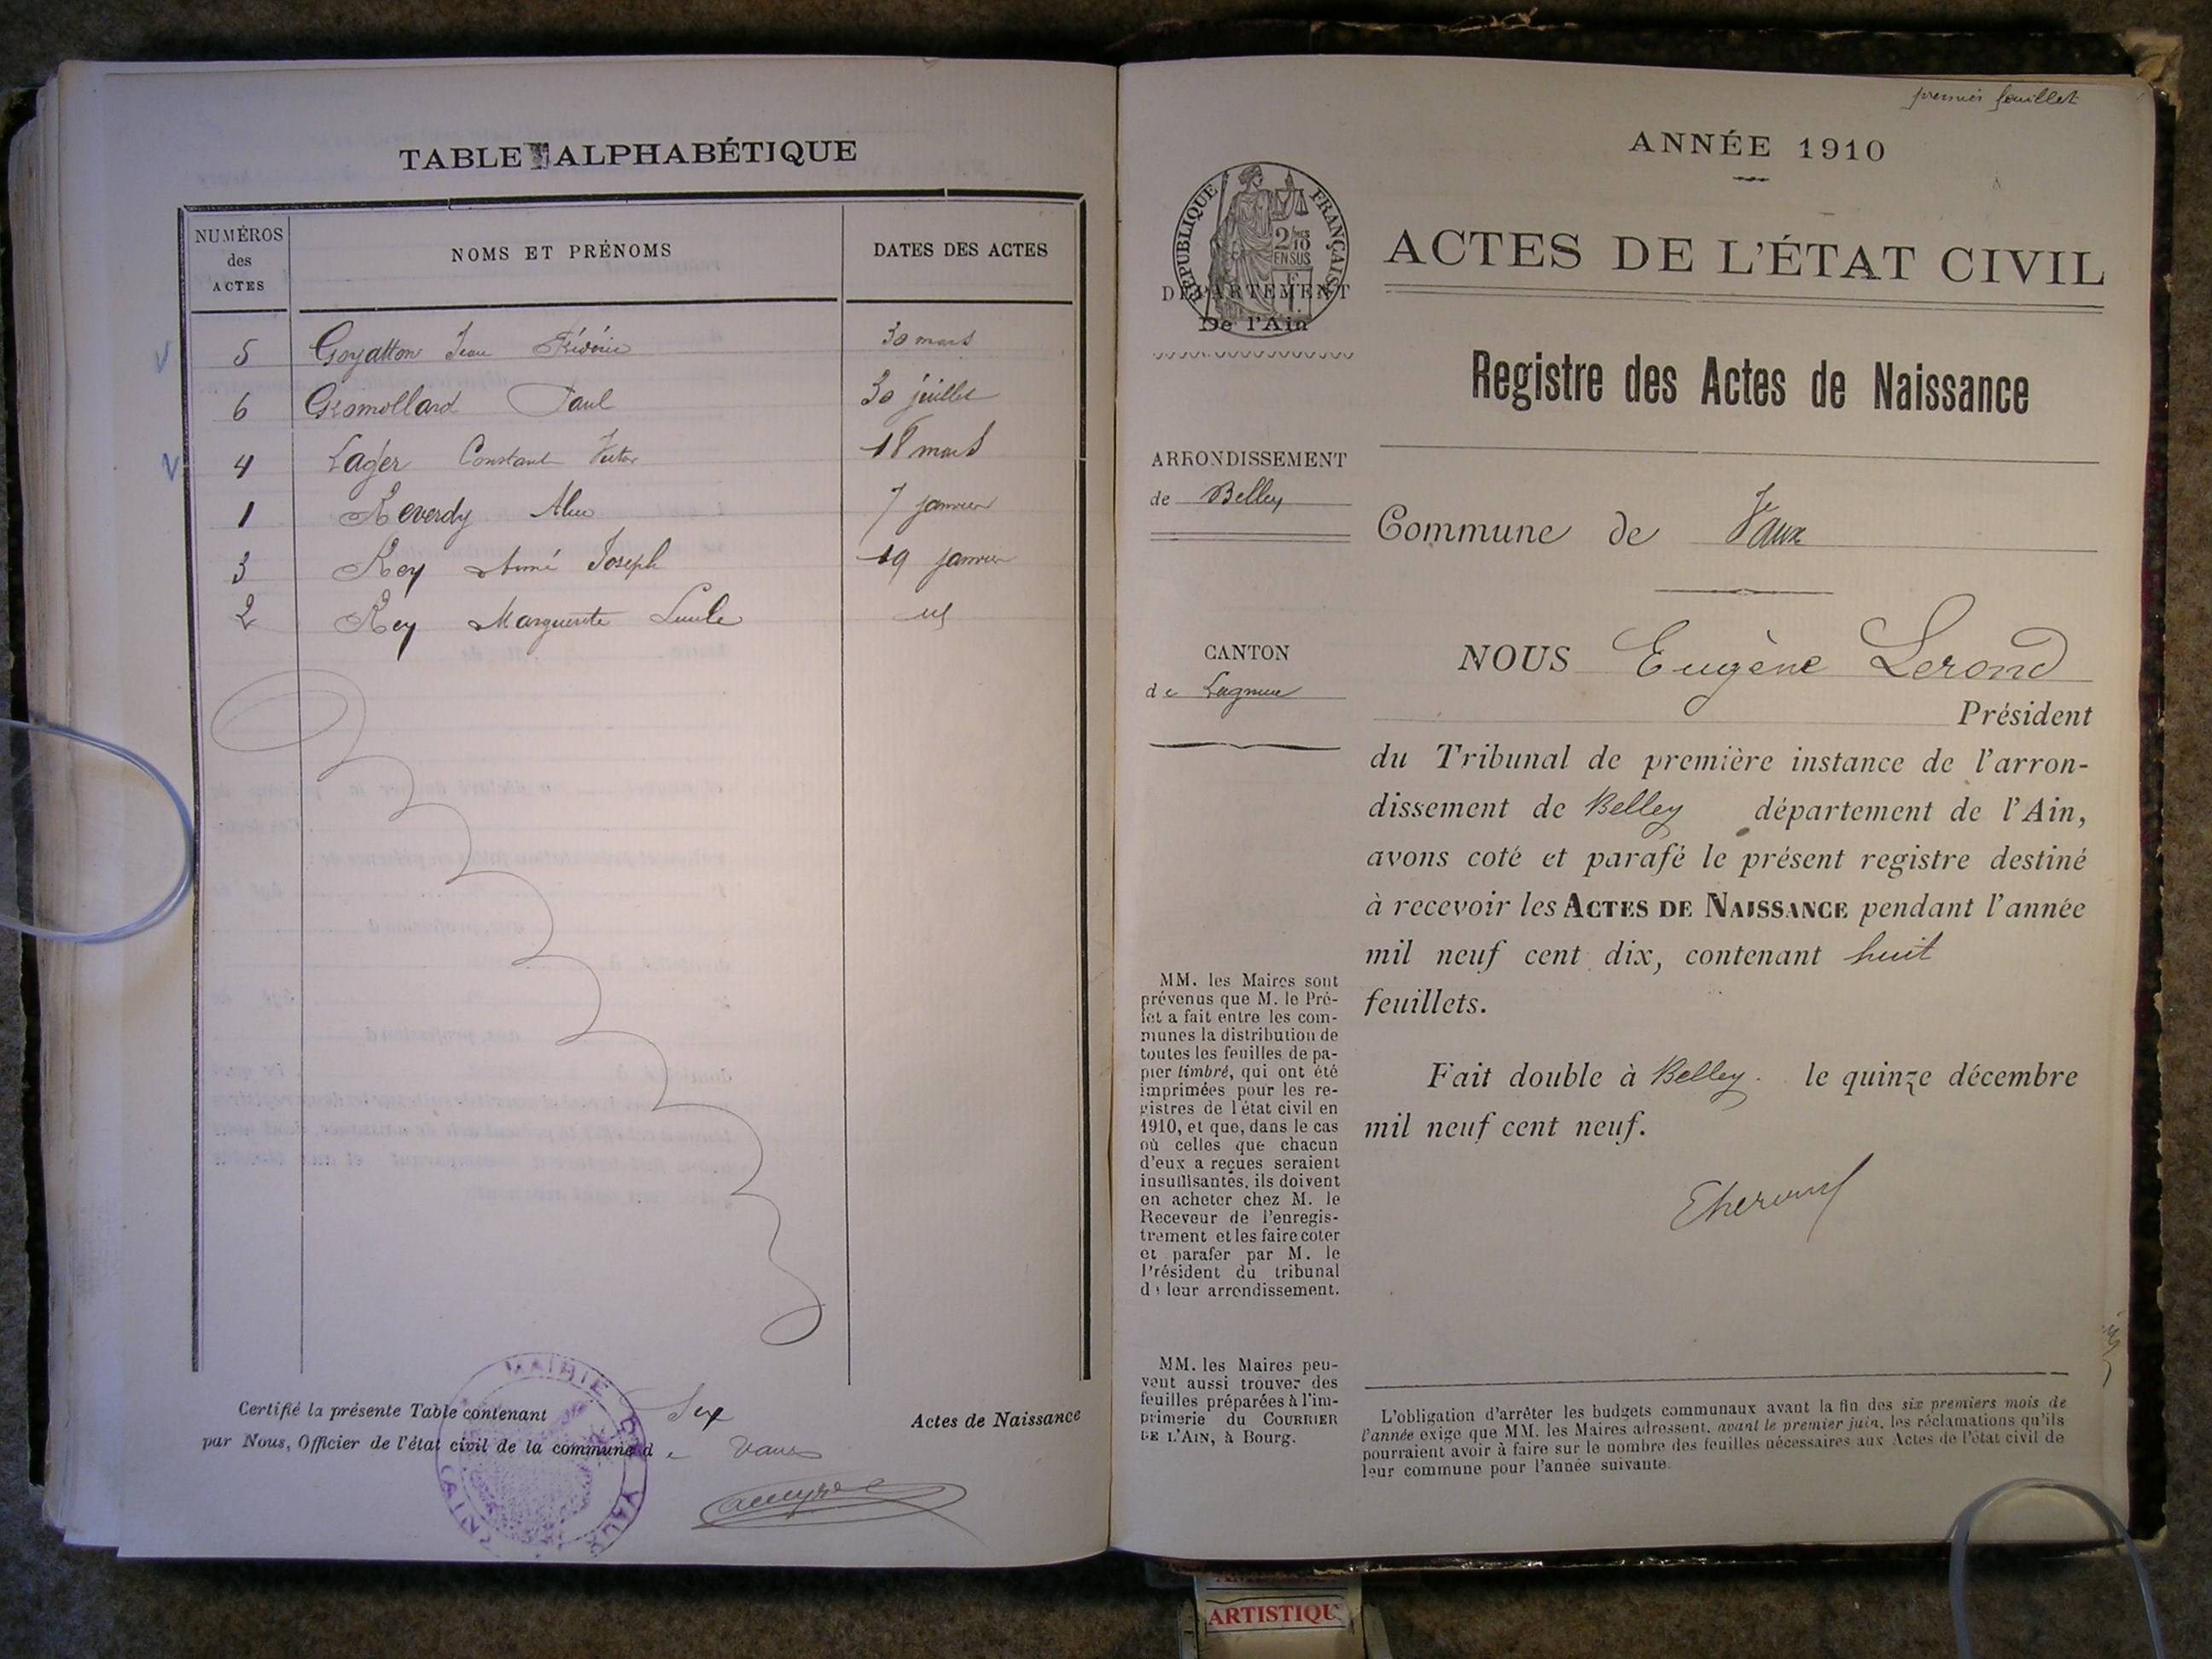 TABLE ALPHABÉTIQUE
NUMÉROS
des
ACTES
NOMS ET PRÉNOMS
DATES DES ACTES
5 Goyatton Jean 30 mars
6 Gromollard Paul 30 juillet
4 Lager Constant Victor 18 mars
1 Reverdy 7 janvier
3 Rey Aimé Joseph 19 janvier
2 Rey Marguerite
Certifié la présente Table contenant Six Actes de Naissance
par Nous, Officier de l'état civil de la commune de Vaux
MAIRIE DE VAUX
(AIN)
premier feuillet
ANNÉE 1910
RÉPUBLIQUE FRANÇAISE
2/10
EN SUS
DÉPARTEMENT
De l'Ain
ACTES DE L'ÉTAT CIVIL
Registre des Actes de Naissance
ARRONDISSEMENT
de Belley
Commune de Vaux
CANTON
de Lagnieu
NOUS Eugène Lerond
Président
du Tribunal de première instance de l'arron-
dissement de Belley département de l'Ain,
avons coté et parafé le présent registre destiné
à recevoir les ACTES DE NAISSANCE pendant l'année
mil neuf cent dix, contenant huit
feuillets.
Fait double à Belley. le quinze décembre
mil neuf cent neuf.
MM. les Maires sont
prévenus que M. le Pré-
fet a fait entre les com-
munes la distribution de
toutes les feuilles de pa-
pier timbré, qui ont été
imprimées pour les re-
gistres de l'état civil en
1910, et que, dans le cas
où celles que chacun
d'eux a reçues seraient
insuffisantes, ils doivent
en acheter chez M. le
Receveur de l'enregis-
trement et les faire coter
et parafer par M. le
Président du tribunal
de leur arrondissement.
MM. les Maires peu-
vent aussi trouver des
feuilles préparées à l'im-
primerie du COURRIER
DE L'AIN, à Bourg.
L'obligation d'arrêter les budgets communaux avant la fin des six premiers mois de
l'année exige que MM. les Maires adressent, avant le premier juin, les réclamations qu'ils
pourraient avoir à faire sur le nombre des feuilles nécessaires aux Actes de l'état civil de
leur commune pour l'année suivante.
ARTISTIQU